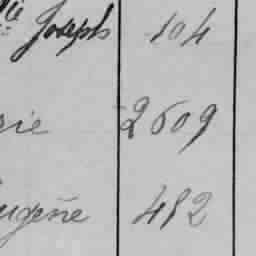 Joseph 104
rie 2609
ugène 482